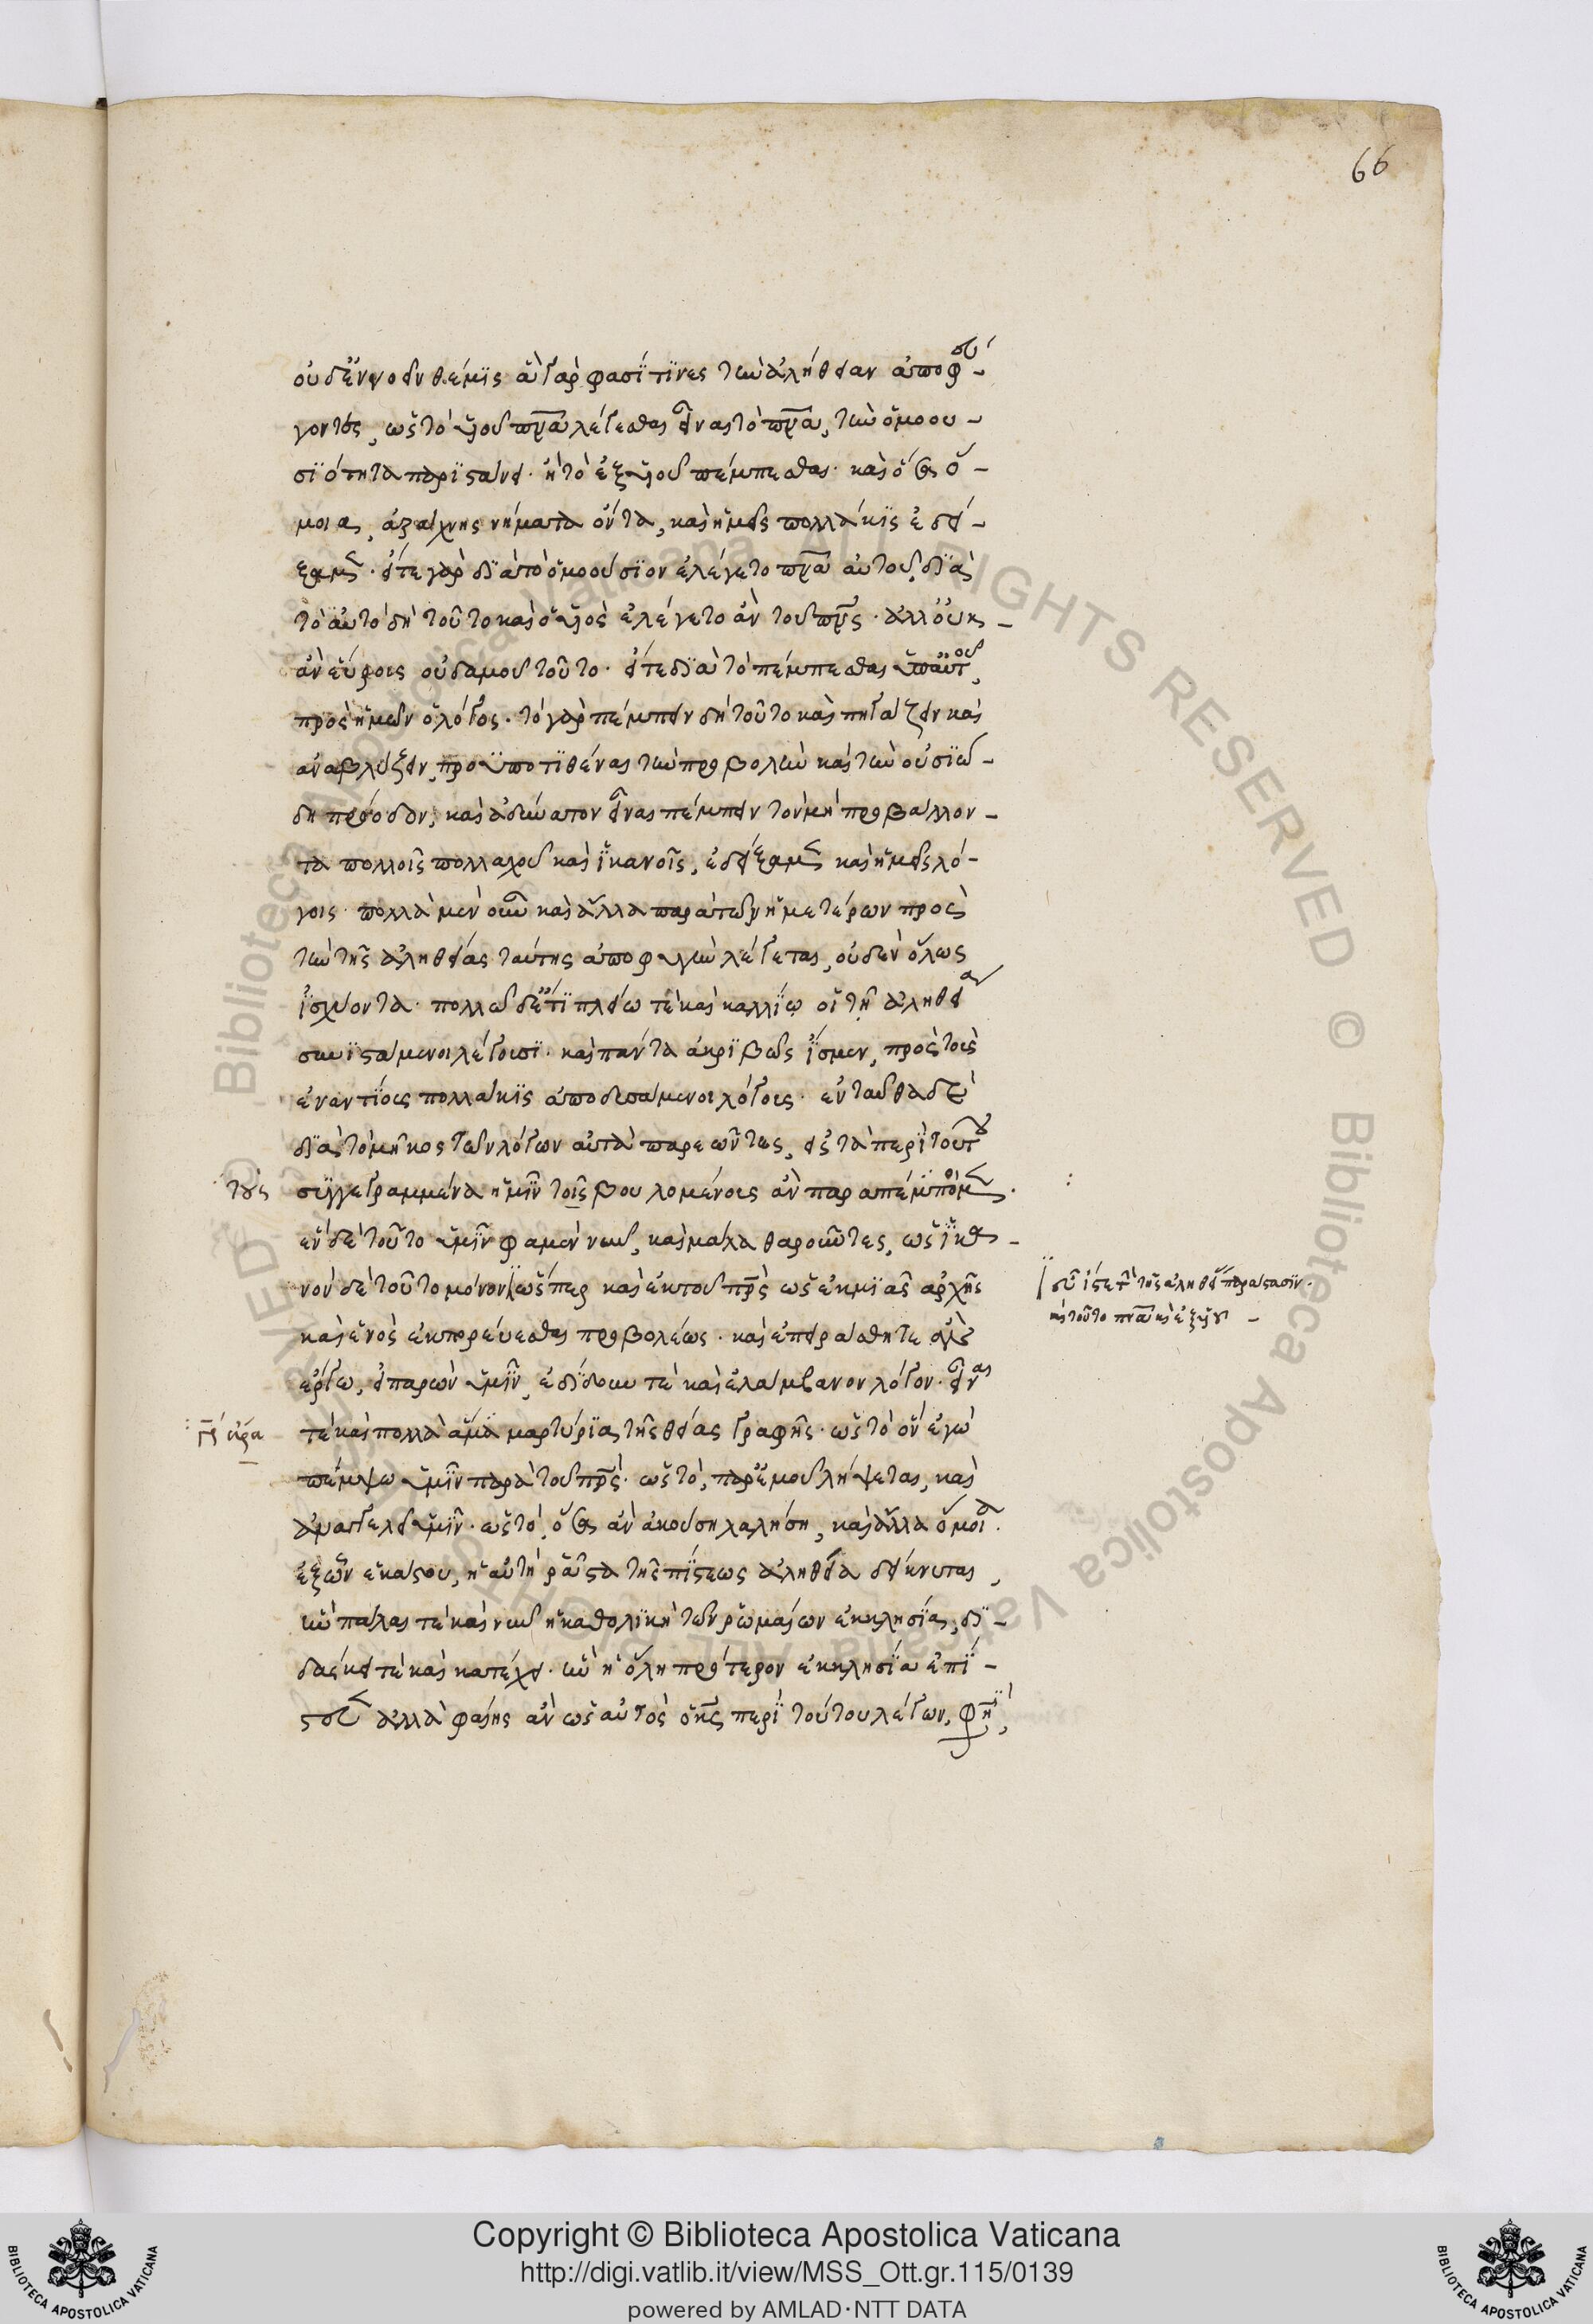 66
οὐδ' ἐννοεῖν θέμις. ἃ γὰρ φασί τινες τὴν ἀλήθειαν ἀποφεύ-
γοντες, ὡς τὸ υἱοῦ πνεῦμα λέγεσθαι εἶναι τὸ πνεῦμα, τὴν ὁμοου-
σιότητα παριστάνει· ἢ τὸ ἐξ υἱοῦ πέμπεσθαι· καὶ ὅσα ὅ-
μοια, ἀράχνης νήματα ὄντα, καὶ ἡμεῖς πολλάκις ἐδεί-
ξαμεν· εἴτε γὰρ διὰ τὸ ὁμοούσιον ἐλέγετο πνεῦμα αὐτοῦ, διὰ
τὸ αὐτὸ δὴ τοῦτο καὶ ὁ υἱὸς ἐλέγετο ἂν τοῦ πνεύματος· ἀλλ' οὐκ
ἂν εὕροις οὐδαμοῦ τοῦτο· εἴτε διὰ τὸ πέμπεσθαι ὑπ' αὐτοῦ,
πρὸς ἡμῶν ὁ λόγος· τὸ γὰρ πέμπειν δὴ τοῦτο καὶ πηγάζειν καὶ
ἀναβλύζειν, προϋποτιθέναι τὴν προβολὴν καὶ τὴν οὐσιώ-
δη πρόοδον, καὶ ἀδύνατον εἶναι πέμπειν τὸν μὴ προβάλλον-
τα πολλοῖς πολλαχοῦ καὶ ἱκανοῖς, ἐδείξαμεν καὶ ἡμεῖς λό-
γοις· πολλὰ μὲν οὖν καὶ ἄλλα παρὰ τῶν ἡμετέρων πρὸς
τὴν τῆς ἀληθείας ταύτης ἀποφυγὴν λέγεται, οὐδὲν ὅλως
ἰσχύοντα· πολλῷ δ' ἔτι πλείω τὲ καὶ καλλίω οἱ τῇ ἀληθείᾳ
συνιστάμενοι λέγουσι· καὶ πάντα ἀκριβῶς ἴσμεν, πρὸς τοὺς
ἐναντίους πολλάκις ἀποδυσάμενοι λόγους· ἐνταῦθα δὲ
διὰ τὸ μῆκος τῶν λόγων αὐτὰ παρεῶντες, εἰς τὰ περὶ τούτου
τοὺς συγγεγραμμένα ἡμῖν τοῖς βουλομένοις ἂν παραπέμποιμεν.
ἓν δὲ τοῦτο ὑμῖν φαμὲν νῦν, καὶ μάλα θαῤῥοῦντες, ὡς ἱκα-
νὸν δὲ τοῦτο μόνον ὥσπερ καὶ ἐκ τοῦ πατρὸς ὡς ἐκ μιᾶς ἀρχῆς
καὶ ἑνὸς ἐκπορεύεσθαι προβολέως· καὶ ἐπειράσθητε
ἔργῳ, εἰ παρὼν ὑμῖν, ἐδίδουν τὲ καὶ ἐλάμβανον λόγον· εἶναι
τὲ καὶ πολλὰ ἅμα μαρτύρια τῆς θείας γραφῆς· ὡς τὸ ὃν ἐγὼ
πέμψω ὑμῖν παρὰ τοῦ πατρός· ὡς τὸ, παρ' ἐμοῦ λήψεται, καὶ
ἀναγγελεῖ ὑμῖν· ὡς τὸ, ὅσα ἂν ἀκούσῃ λαλήσῃ, καὶ ἄλλα ὅμοια.
ἐξ ὧν ἑκάστου, ἡ αὐτὴ ῥᾷστα τῆς πίστεως ἀλήθεια δείκνυται,
ἣν πάλαι τὲ καὶ νῦν ἡ καθολικὴ τῶν ῥωμαίων ἐκκλησία, δι-
δάσκει τὲ καὶ κατέχει· ἣν ἡ ὅλη πρότερον ἐκκλησία ἐπί-
στευσεν ἀλλὰ φαίης ἂν ὡς αὐτὸς ὁ κύριος περὶ τούτου λέγων, φησὶ,
συστῆσαι τὴν τῆς ἀληθείας παράστασιν.
τοῦτο πνεῦμα καὶ ἐξ υἱοῦ
Copyright © Biblioteca Apostolica Vaticana
http://digi.vatlib.it/view/MSS_Ott.gr.115/0139
powered by AMLAD·NTT DATA
BIBLIOTECA APOSTOLICA VATICANA
BIBLIOTECA APOSTOLICA VATICANA